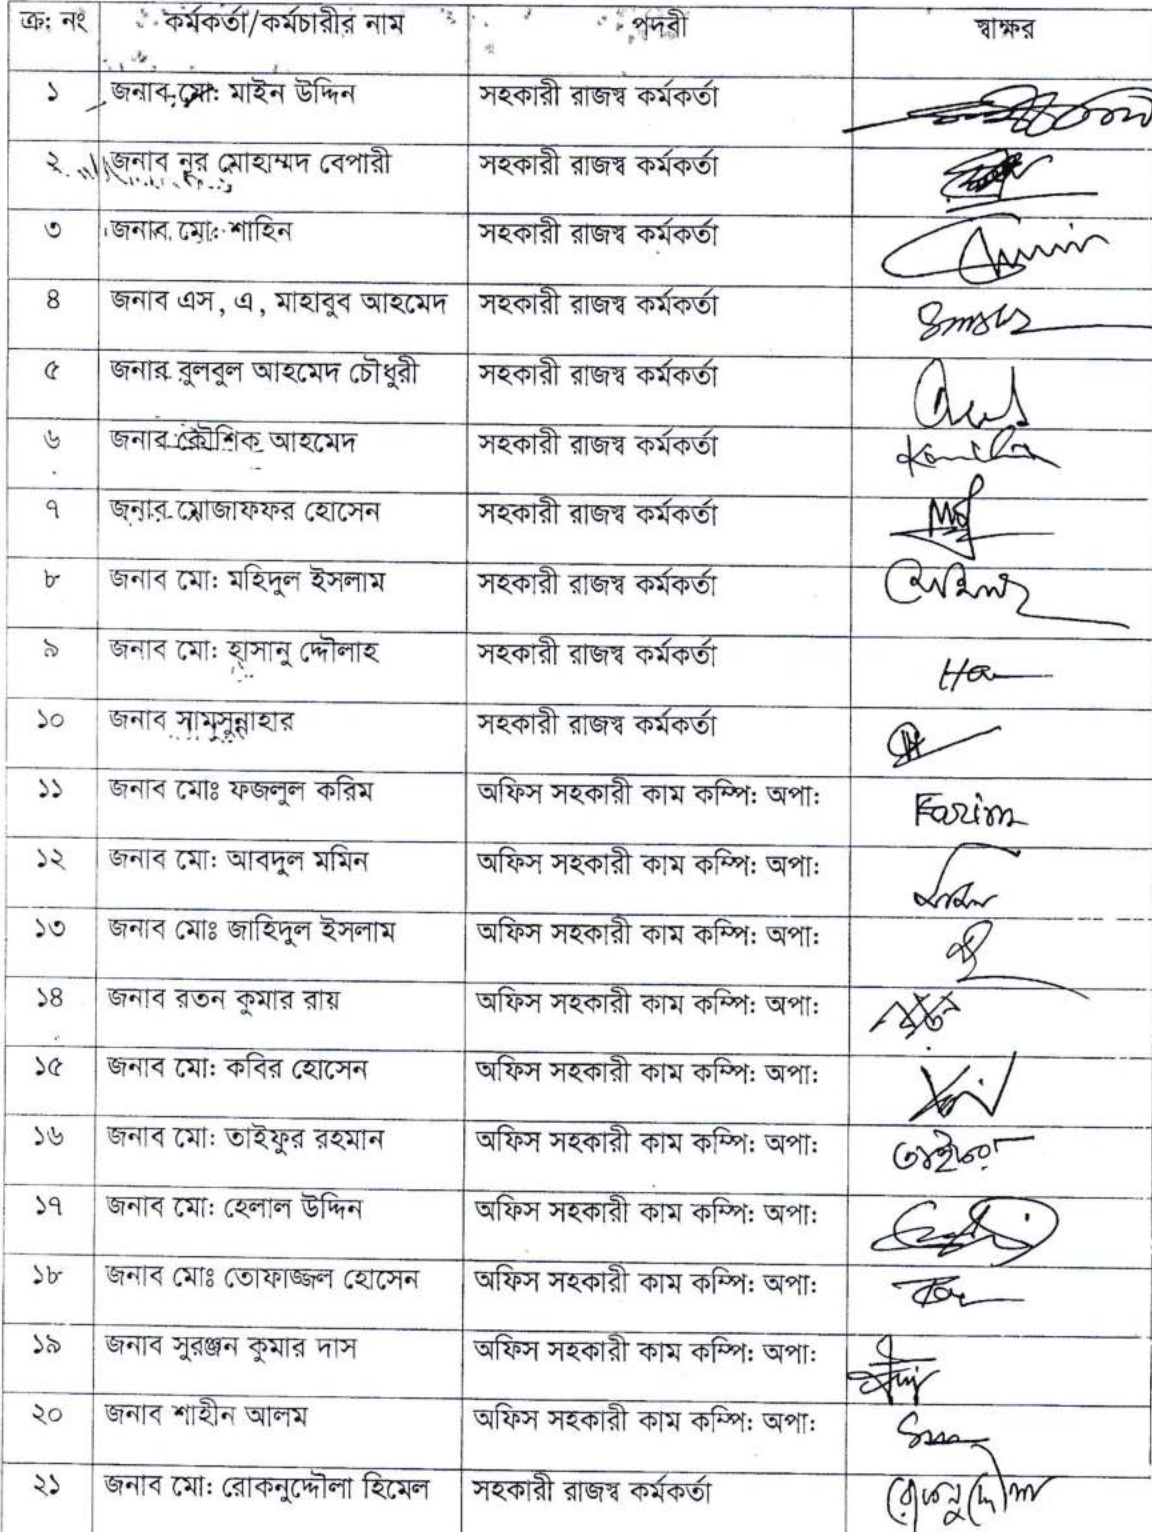 ক্র: নং কর্মকর্তা/কর্মচারীর নাম পদবী স্বাক্ষর
১ জনাব মো: মাইন উদ্দিন সহকারী রাজস্ব কর্মকর্তা
২ জনাব নূর মোহাম্মদ বেপারী সহকারী রাজস্ব কর্মকর্তা
৩ জনাব মো: শাহিন সহকারী রাজস্ব কর্মকর্তা
৪ জনাব এস, এ, মাহাবুব আহমেদ সহকারী রাজস্ব কর্মকর্তা
৫ জনাব বুলবুল আহমেদ চৌধুরী সহকারী রাজস্ব কর্মকর্তা
৬ জনাব কৌশিক আহমেদ সহকারী রাজস্ব কর্মকর্তা
৭ জনাব মোজাফফর হোসেন সহকারী রাজস্ব কর্মকর্তা
৮ জনাব মো: মহিদুল ইসলাম সহকারী রাজস্ব কর্মকর্তা
৯ জনাব মো: হাসানু দ্দৌলাহ সহকারী রাজস্ব কর্মকর্তা
১০ জনাব সামসুন্নাহার সহকারী রাজস্ব কর্মকর্তা
১১ জনাব মোঃ ফজলুল করিম অফিস সহকারী কাম কম্পি: অপা: Karim
১২ জনাব মো: আবদুল মমিন অফিস সহকারী কাম কম্পি: অপা:
১৩ জনাব মোঃ জাহিদুল ইসলাম অফিস সহকারী কাম কম্পি: অপা:
১৪ জনাব রতন কুমার রায় অফিস সহকারী কাম কম্পি: অপা: রতন
১৫ জনাব মো: কবির হোসেন অফিস সহকারী কাম কম্পি: অপা:
১৬ জনাব মো: তাইফুর রহমান অফিস সহকারী কাম কম্পি: অপা:
১৭ জনাব মো: হেলাল উদ্দিন অফিস সহকারী কাম কম্পি: অপা:
১৮ জনাব মোঃ তোফাজ্জল হোসেন অফিস সহকারী কাম কম্পি: অপা:
১৯ জনাব সুরঞ্জন কুমার দাস অফিস সহকারী কাম কম্পি: অপা:
২০ জনাব শাহীন আলম অফিস সহকারী কাম কম্পি: অপা:
২১ জনাব মো: রোকনুদ্দৌলা হিমেল সহকারী রাজস্ব কর্মকর্তা